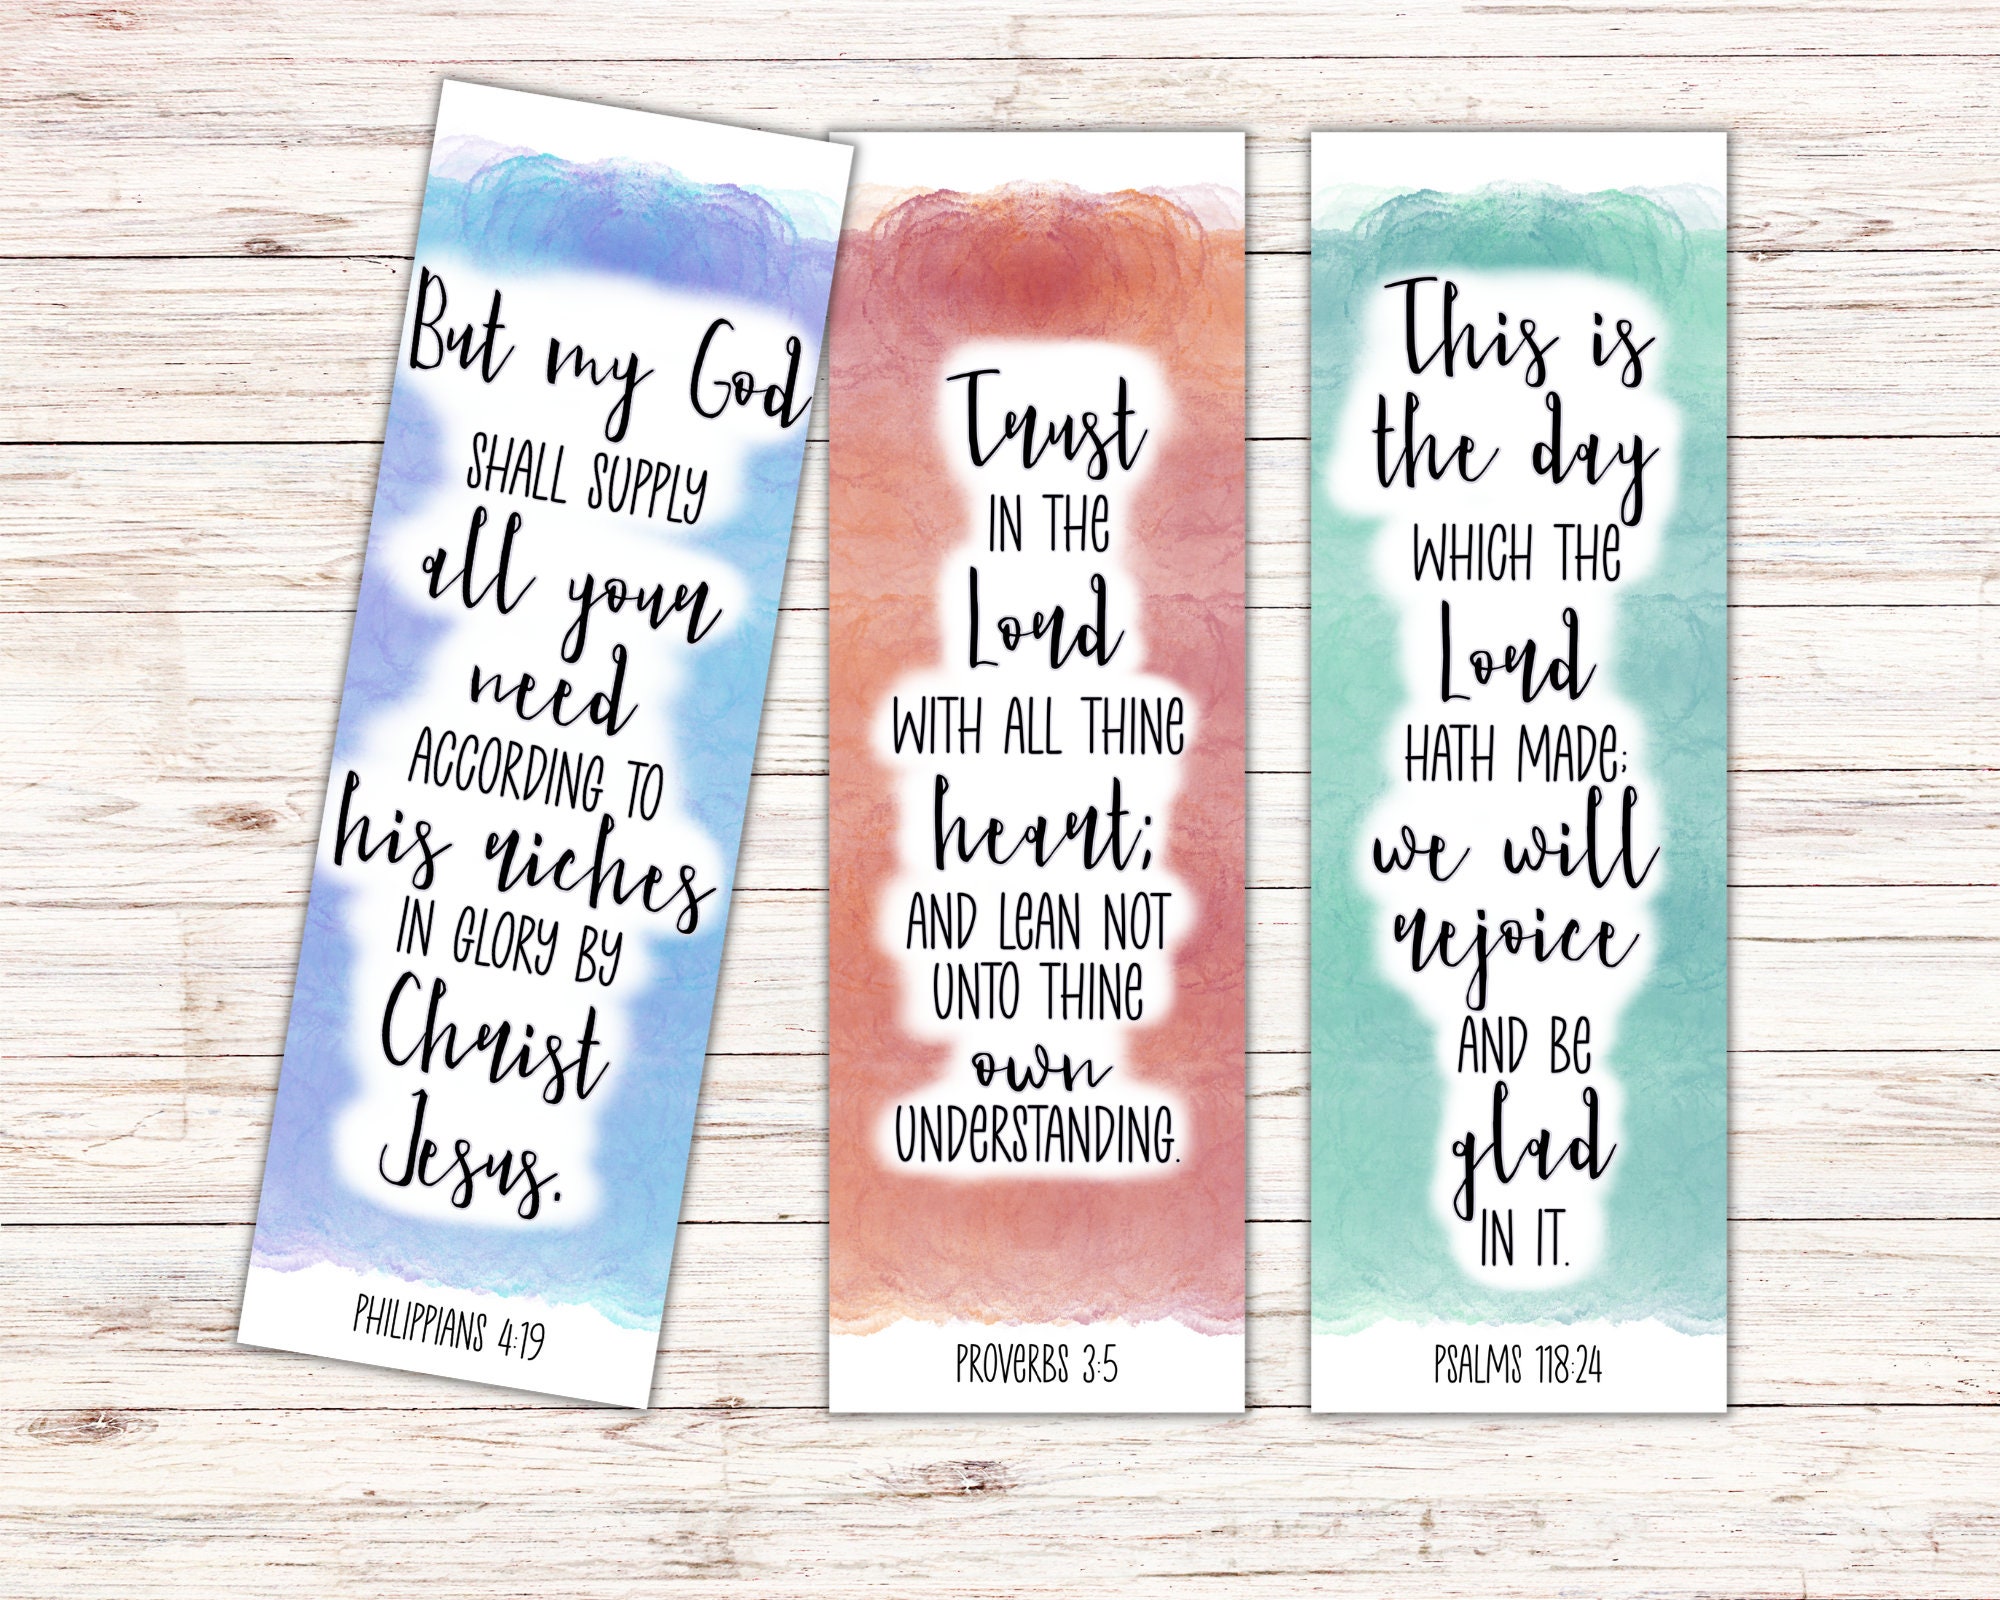 But my God
SHALL SUPPLY
all your
need
ACCORDING TO
his riches
IN GLORY BY
Christ
Jesus.
PHILIPPIANS 4:19
Trust
IN THE
Lord
WITH ALL THINE
heart;
AND LEAN NOT
UNTO THINE
own
UNDERSTANDING.
PROVERBS 3:5
This is
the day
WHICH THE
Lord
HATH MADE;
we will
rejoice
AND BE
glad
IN IT.
PSALMS 118:24